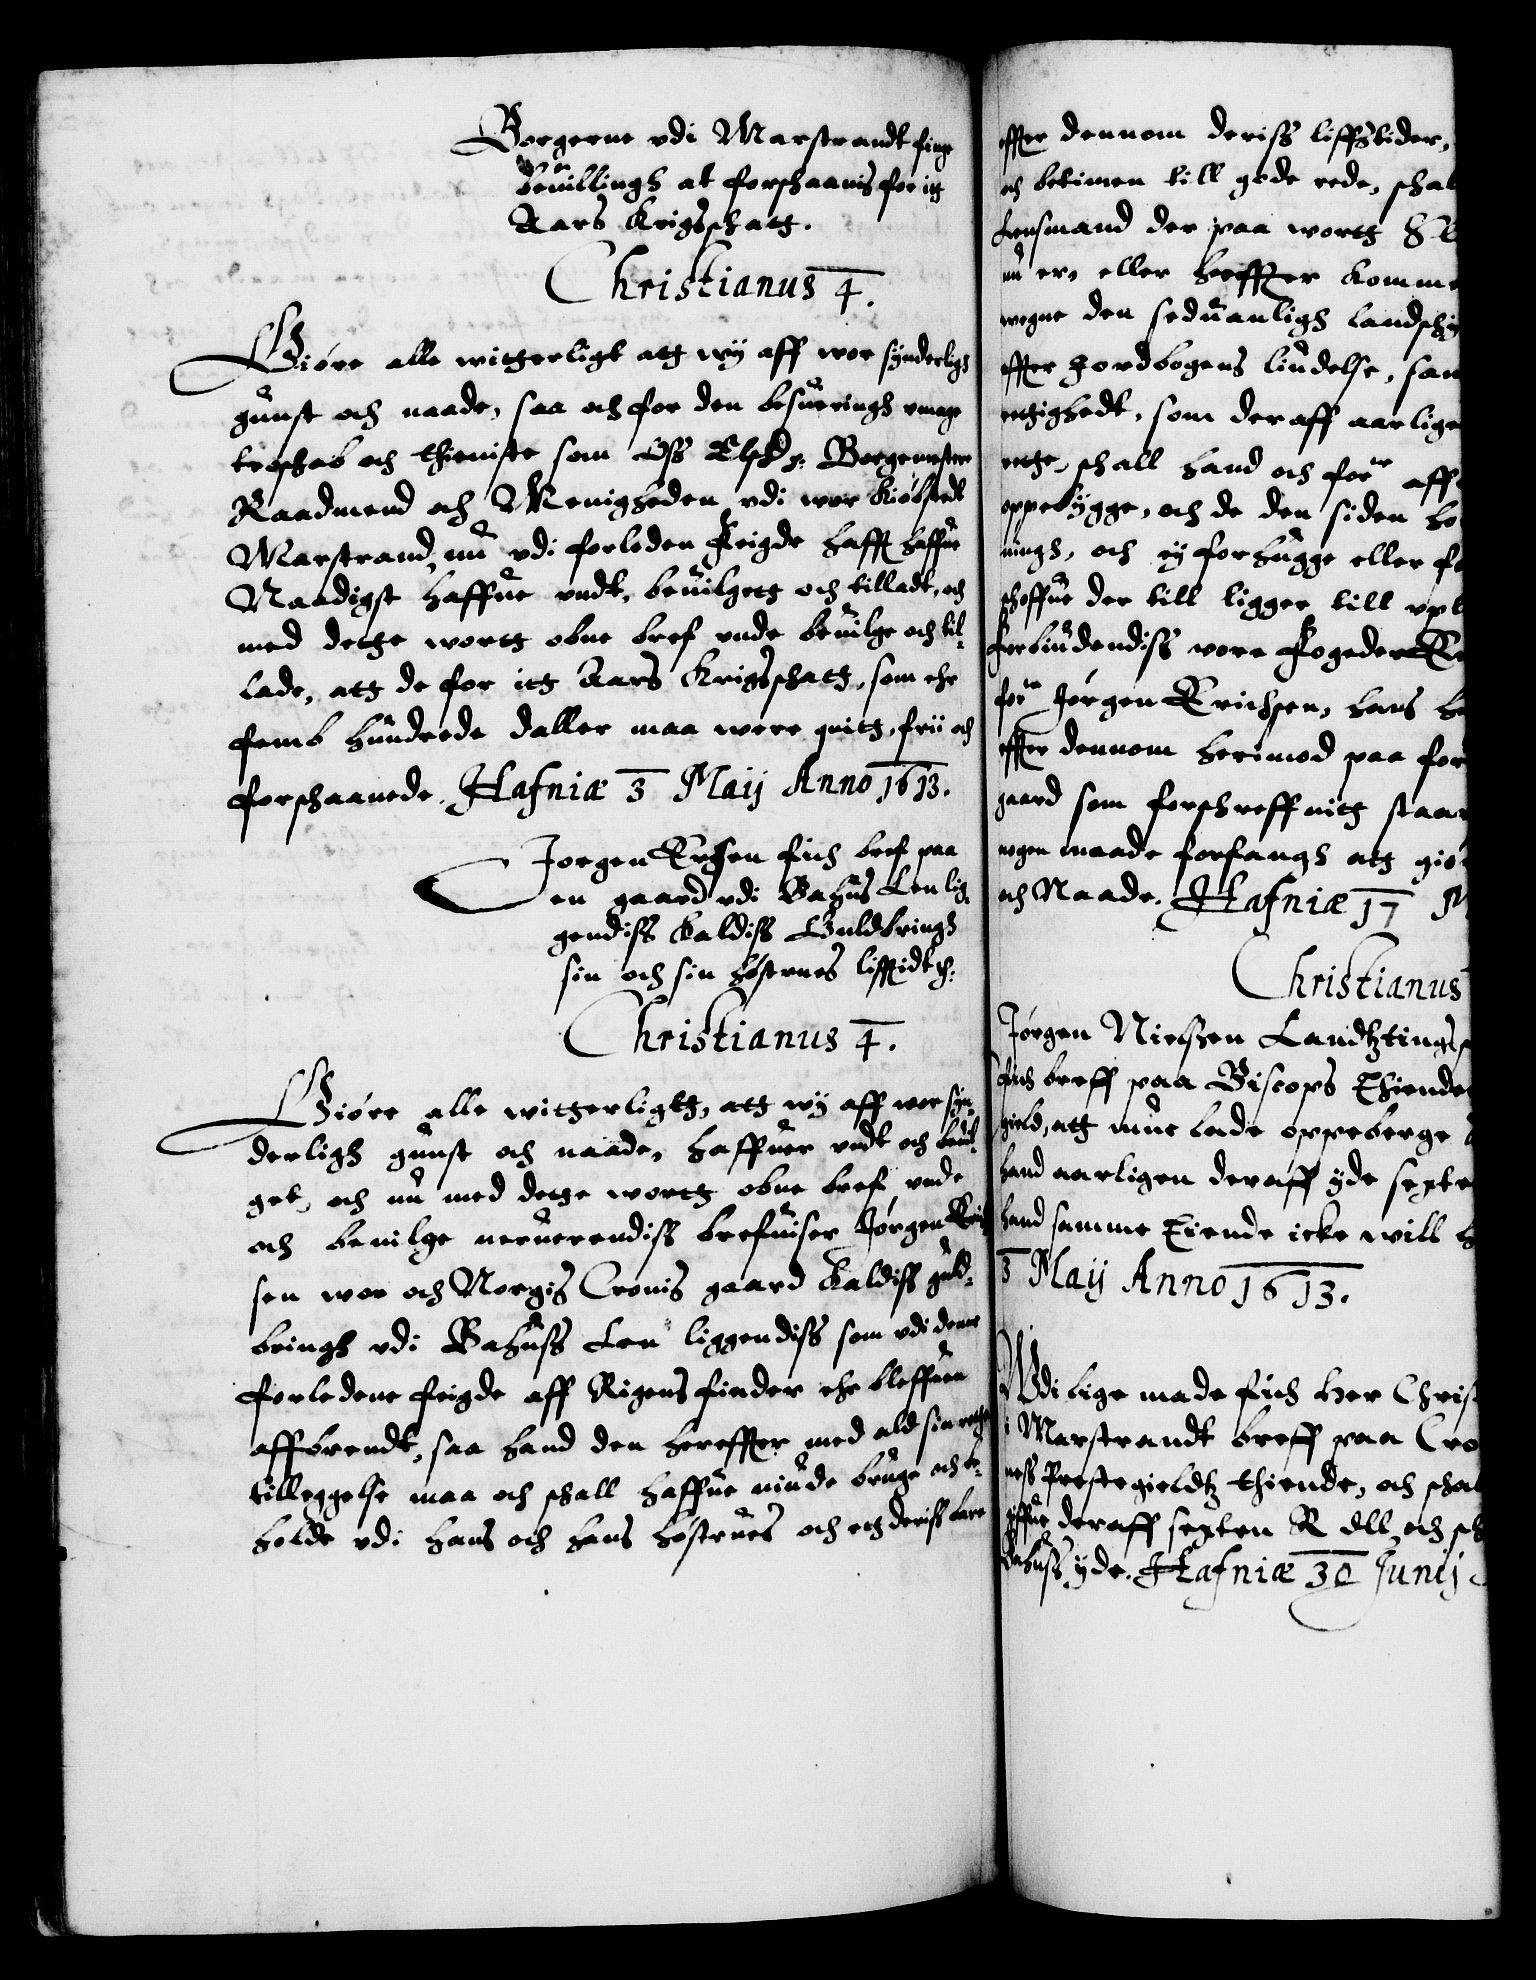 Borgerne vdi Marstrandt finge
beuillingh at forschaanis for itt
Aars Krigsschatt.
Christianus 4.
Giøre alle witterligt att wÿ aff wor sÿnderligh
gunst och naade, saa och for den besueringh vmage
troschab och thieniste som Oss Elsk: Borgemester
Raadmend och Menigheden vdi wor Kiøbstedt
Marstrand, nu vdi forleden Feigde hafft haffue
Naadigst haffue vndt, beuilgett och tilladt, och
med dette wortt obne bref vnde beuilge och til-
lade, att de for itt Aars Krigsschatt, som ehr
femb hundrede daller maa were quitt, frii och
forschaanede. Hafniæ 3 Maij Anno 1613.
Jorgen Ersen fich bref paa
en gaard vdi Bahus Len lig-
gendiss kaldiss Guldbringh
sin och sin høstrues liffstidt etc.
Christianus 4.
Giøre alle witterligtt, att wÿ aff wor sÿn-
derligh gunst och naade, haffuer vndt och beuil-
get, och nu med dette wortt obne bref vnde
och beuilge neruerendiss brefuiser Jørgen Erich
sen wor och Norgis Cronis gaard kaldiss guld-
bringh vdi Bahuss Len liggendiss som vdi denne
forledene feigde aff Rigens fiender ehr bleffuen
affbrendt, saa hand den hereffter med ald sin rette
tilleggelse maa och schall haffue niude bruge och be-
holde vdi hans och hans høstrues och ett deriss barn
effter dennom deriss liffstider,
och betimen till gode rede, schal
Lensmand der paa wortt
nu er, eller hereffter komme
wegne den seduanligh landschÿ
effter Jordbogens liudelse, sam
rettighedt, som deraff aarlige
rette, schall hand och for.ne aff
oppebÿgge, och de den siden ho
ningh, och ej forhugge eller fo
schoffue der till ligger till vpl
Forbiudendiss vore Fogeder
for.ne Jørgen Erichsen, hans h
effter dennom herimod paa for
gaard som forschreffuitt staar
nogen maade forfangh att giør
och Naade. Hafniæ 17 M
Christianus
Jørgen Nielssen Landtztings
fich breff paa Biscops Thiende
gield, att mue lade oppeberge
hand aarligen deraff ÿde septe
hand samme Tiende icke will h
3 Maij Anno 1613.
Wdi lige made fich Her Chris
i Marstrandt breff paa Cro
ness Prestegieldtz thiende, och schal
giffue deraff septen R dll, och sch
Bahuss ÿde. Hafniæ 30 Junij